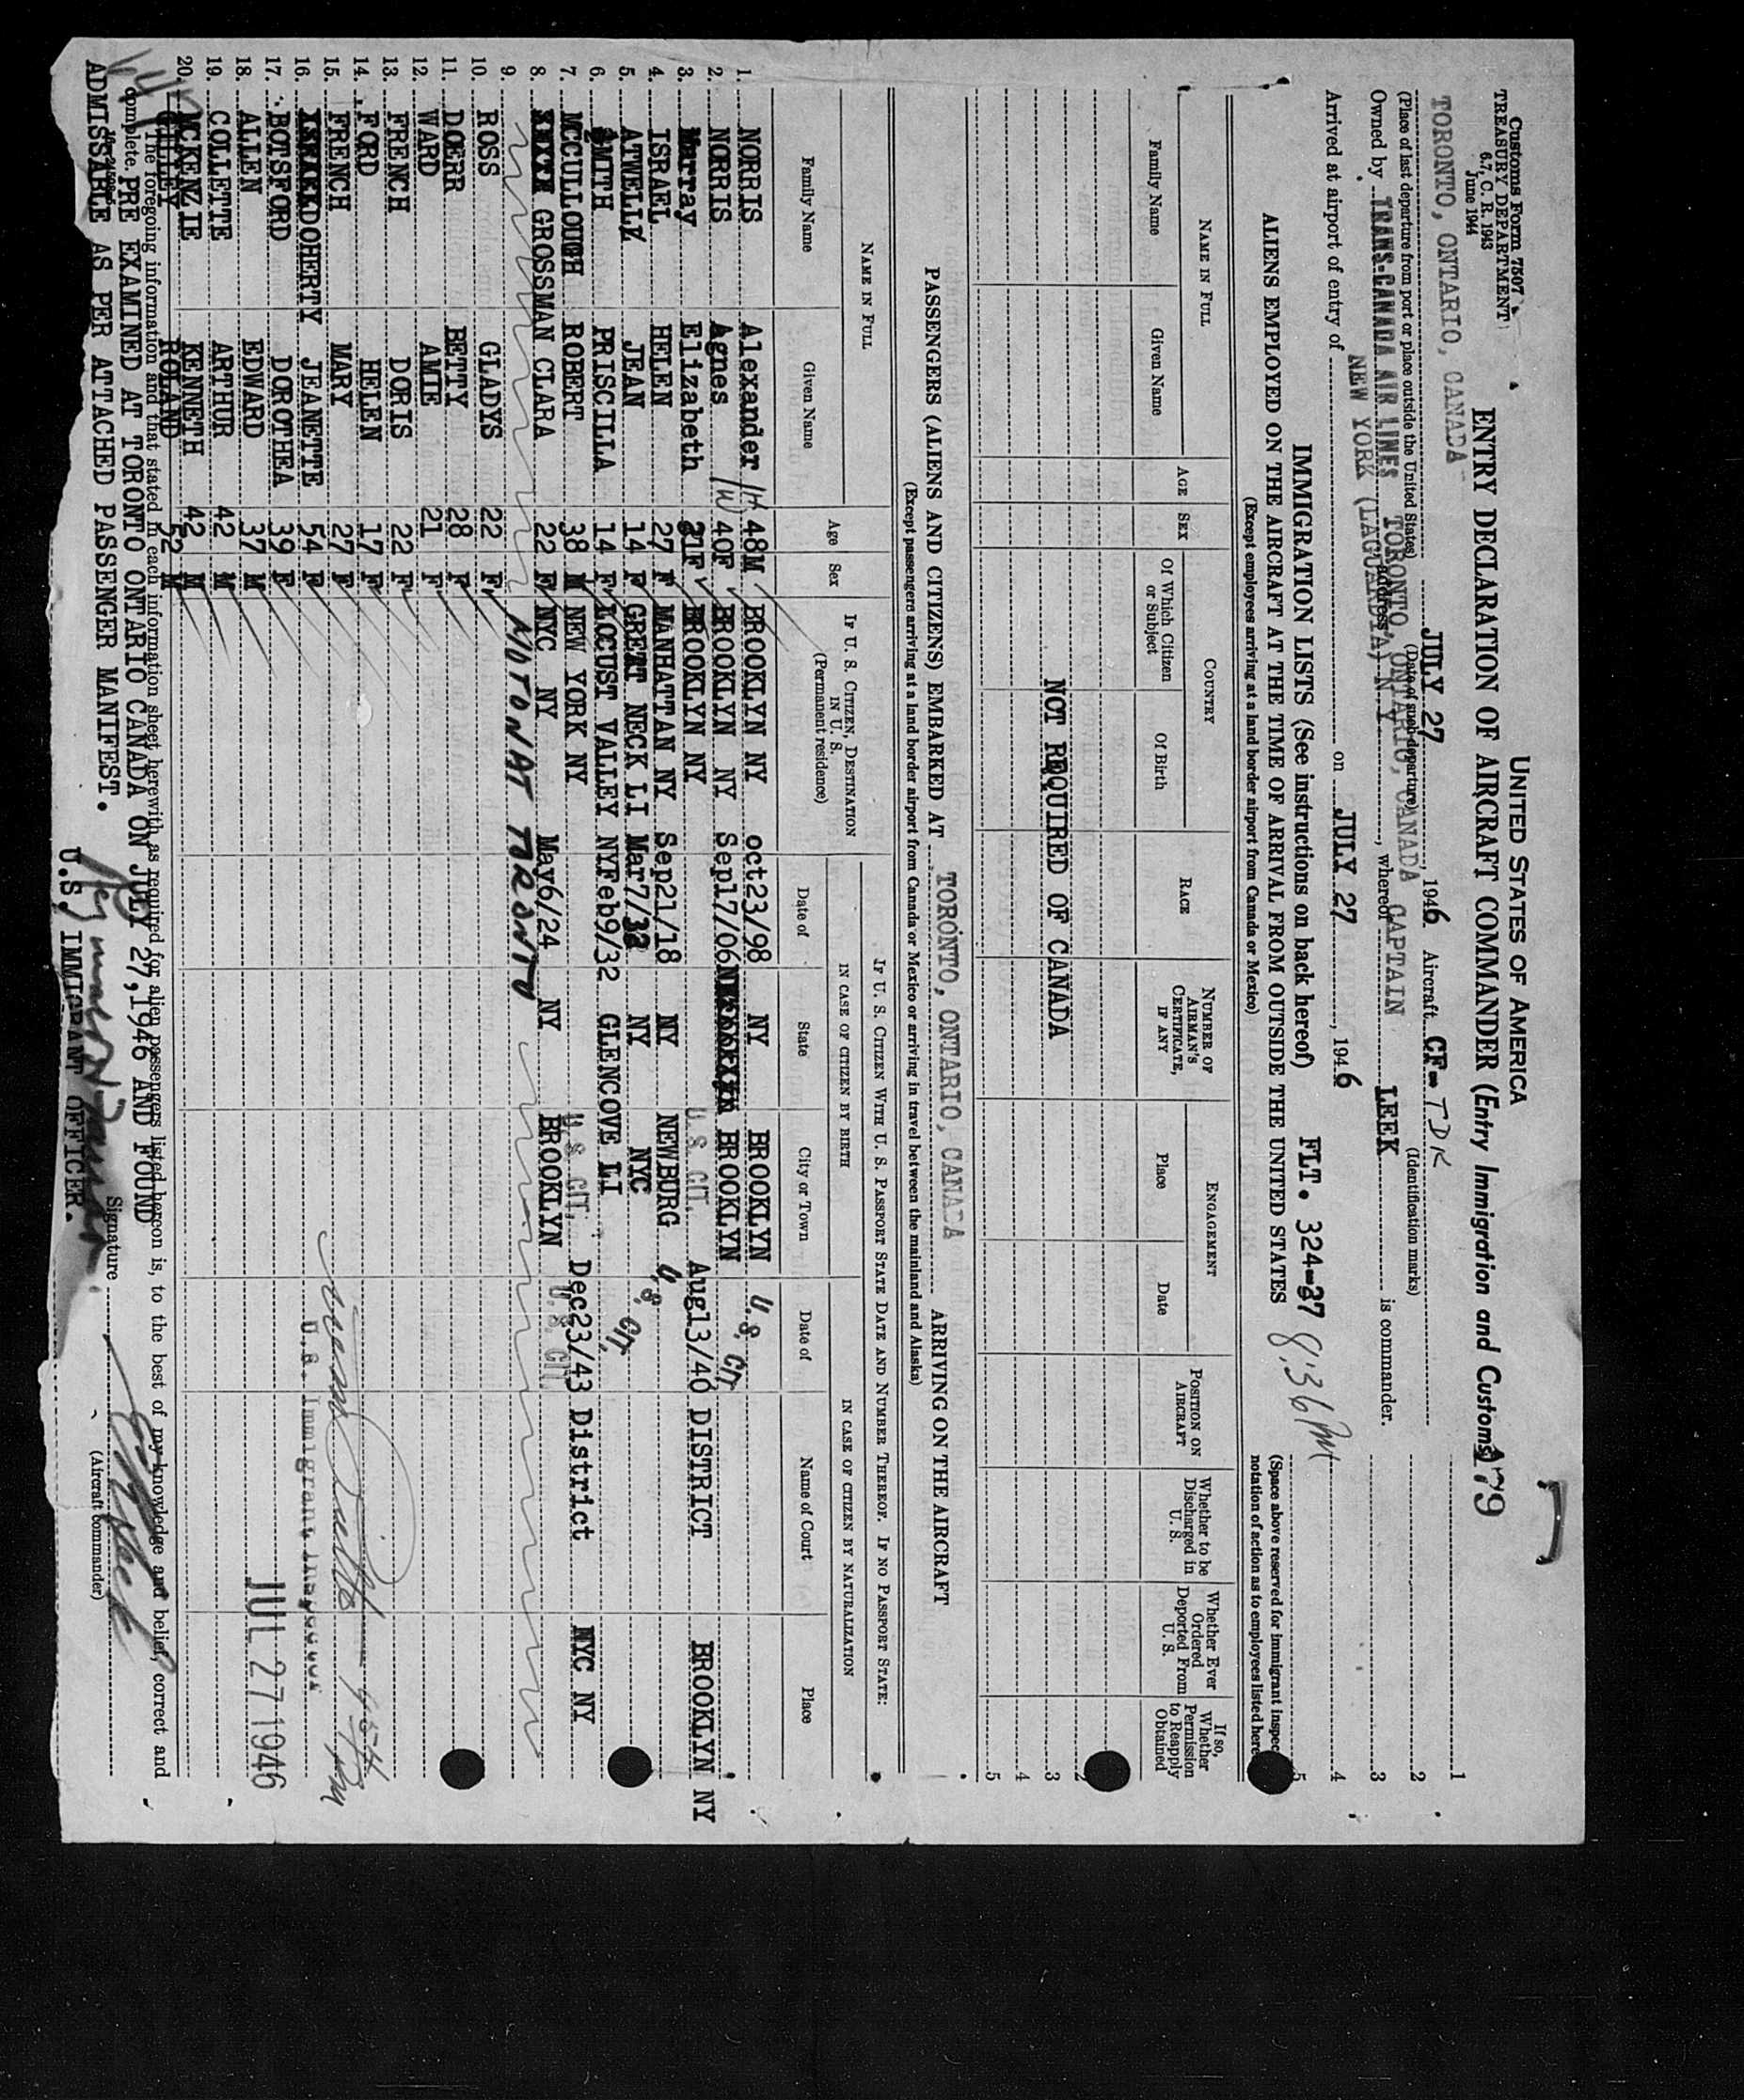 Customs Form 7507
TREASURY DEPARTMENT
6.7, C. R. 1943
June 1944
UNITED STATES OF AMERICA
ENTRY DECLARATION OF AIRCRAFT COMMANDER (Entry Immigration and Customs)
179
TORONTO, ONTARIO, CANADA JULY 27, 1946 Aircraft CF-TDK
(Place of last departure from port or place outside the United States) (Date of such departure) (Identification marks)
Owned by TRANS-CANADA AIR LINES address TORONTO, ONTARIO, CANADA, whereof CAPTAIN LEEK is commander.
Arrived at airport of entry of NEW YORK (LAGUARDIA) N.Y. on JULY 27, 1946
IMMIGRATION LISTS (See instructions on back hereof) FLT. 324-27 8:36 PM
ALIENS EMPLOYED ON THE AIRCRAFT AT THE TIME OF ARRIVAL FROM OUTSIDE THE UNITED STATES
(Except employees arriving at a land border airport from Canada or Mexico)
(Space above reserved for immigrant inspec
notation of action as to employees listed here
1
2
3
4
5
NAME IN FULL
Family Name
Given Name
AGE
SEX
COUNTRY
Of Which Citizen or Subject
Of Birth
RACE
NUMBER OF AIRMAN'S CERTIFICATE, IF ANY
ENGAGEMENT
Place
Date
POSITION ON AIRCRAFT
Whether to be Discharged in U. S.
Whether Ever Ordered Deported From U. S.
If so, Whether Permission to Reapply Obtained
NOT REQUIRED OF CANADA
2
3
4
5
PASSENGERS (ALIENS AND CITIZENS) EMBARKED AT TORONTO, ONTARIO, CANADA ARRIVING ON THE AIRCRAFT
(Except passengers arriving at a land border airport from Canada or Mexico or arriving in travel between the mainland and Alaska)
NAME IN FULL
Family Name
Given Name
Age
Sex
IF U. S. CITIZEN, DESTINATION IN U. S.
(Permanent residence)
IF U. S. CITIZEN WITH U. S. PASSPORT STATE DATE AND NUMBER THEREOF. IF NO PASSPORT STATE:
IN CASE OF CITIZEN BY BIRTH
IN CASE OF CITIZEN BY NATURALIZATION
Date of
State
City or Town
Date of
Name of Court
Place
1. NORRIS Alexander (H) 48 M BROOKLYN NY oct23/98 NY BROOKLYN U.S. CIT
2. NORRIS Agnes (W) 40F BROOKLYN NY Sep17/06 BROOKLYN
3. Murray Elizabeth 21F BROOKLYN NY U.S. CIT. Aug13/40 DISTRICT BROOKLYN NY
4. ISRAEL HELEN 27 F MANHATTAN NY Sep21/18 NY NEWBURG U.S. CIT.
5. ATWELL JEAN 14 F GREAT NECK LI Mar7/32 NY NYC
6. SMITH PRISCILLA 14 F LOCUST VALLEY NY Feb9/32 GLENCOVE LI
7. MCCULLOUGH ROBERT 38 M NEW YORK NY U.S. CIT. Dec23/43 District NYC NY
8. GROSSMAN CLARA 22 F NYC NY May6/24 NY BROOKLYN U.S. CIT.
9. NOTON AT TORONTO
10. ROSS GLADYS 22 F
11. DOERR BETTY 28 F
12. WARD AMIE 21 F
13. FRENCH DORIS 22 F
14. FORD HELEN 17 F
15. FRENCH MARY 27 F
16. DOHERTY JEANETTE 54 F
17. BOTSFORD DOROTHEA 39 F
18. ALLEN EDWARD 37 M
19. COLLETTE ARTHUR 42 M
20. MCKENZIE KENNETH 42 M
ROLAND 52 M
U.S. Immigrant Inspector
JUL 27 1946
The foregoing information and that stated in each information sheet herewith as required for alien passengers listed hereon is, to the best of my knowledge and belief, correct and complete.
PRE EXAMINED AT TORONTO ONTARIO CANADA ON JULY 27,1946 AND FOUND
ADMISSABLE AS PER ATTACHED PASSENGER MANIFEST.
U.S. IMMIGRANT OFFICER.
Signature
(Aircraft commander)